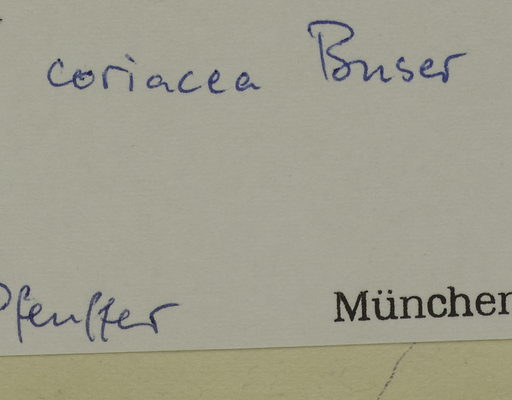 coriacea Buser
Pfeuffer München